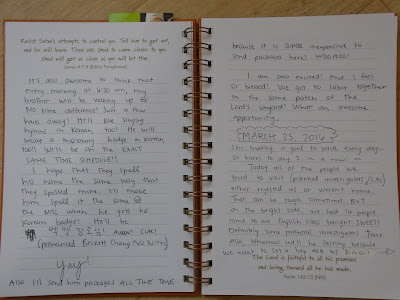 Resist Satan's attempts to control you. Tell him to get out,
and he will leave. Then ask God to come closer to you.
God will get as close as you will let Him.
James 4:7,8
It's also awesome to think that
every morning at 6:30 am, my
brother will be waking up
No time difference! Just a few
hours away! He'll love singing
hymns in Korean, too! He will
wear a missionary badge in Korean,
too!! We'll be on the EXACT
SAME TIME SCHEDULE!!
I hope that they spell
his name the same way that
they spelled mine. I'll make
him spell it the same @
the MTC when he gets his
Korean badge! He'll be
장로님! Awww! Cute!
(pronounced Beckett Chang No Nim)
Yay!
Also I'll send him packages ALL THE TIME
because it is SUPER inexpensive to
send packages here! WOOTHOO!
I am sooo excited! And I feel
so blessed! We get to labor together
in the same portion of the
Lord's vineyard! What an awesome
opportunity.
MARCH 25, 2014
I'm making a goal to write every day...
so here's to day 2 in a row!
Today all of the people we
tried to visit (potential investigators/LAs)
either rejected us or weren't home.
That can be tough sometimes. BUT
on the bright side, we had 14 people
come to our English class tonight! SWEET!
Definitely some potential investigators there.
Also, tomorrow we'll be fasting because
we want to set a bap. date w/
The Lord is faithful to all his promises
and loving toward all he has made.
Psalm 145:13 (NIV)